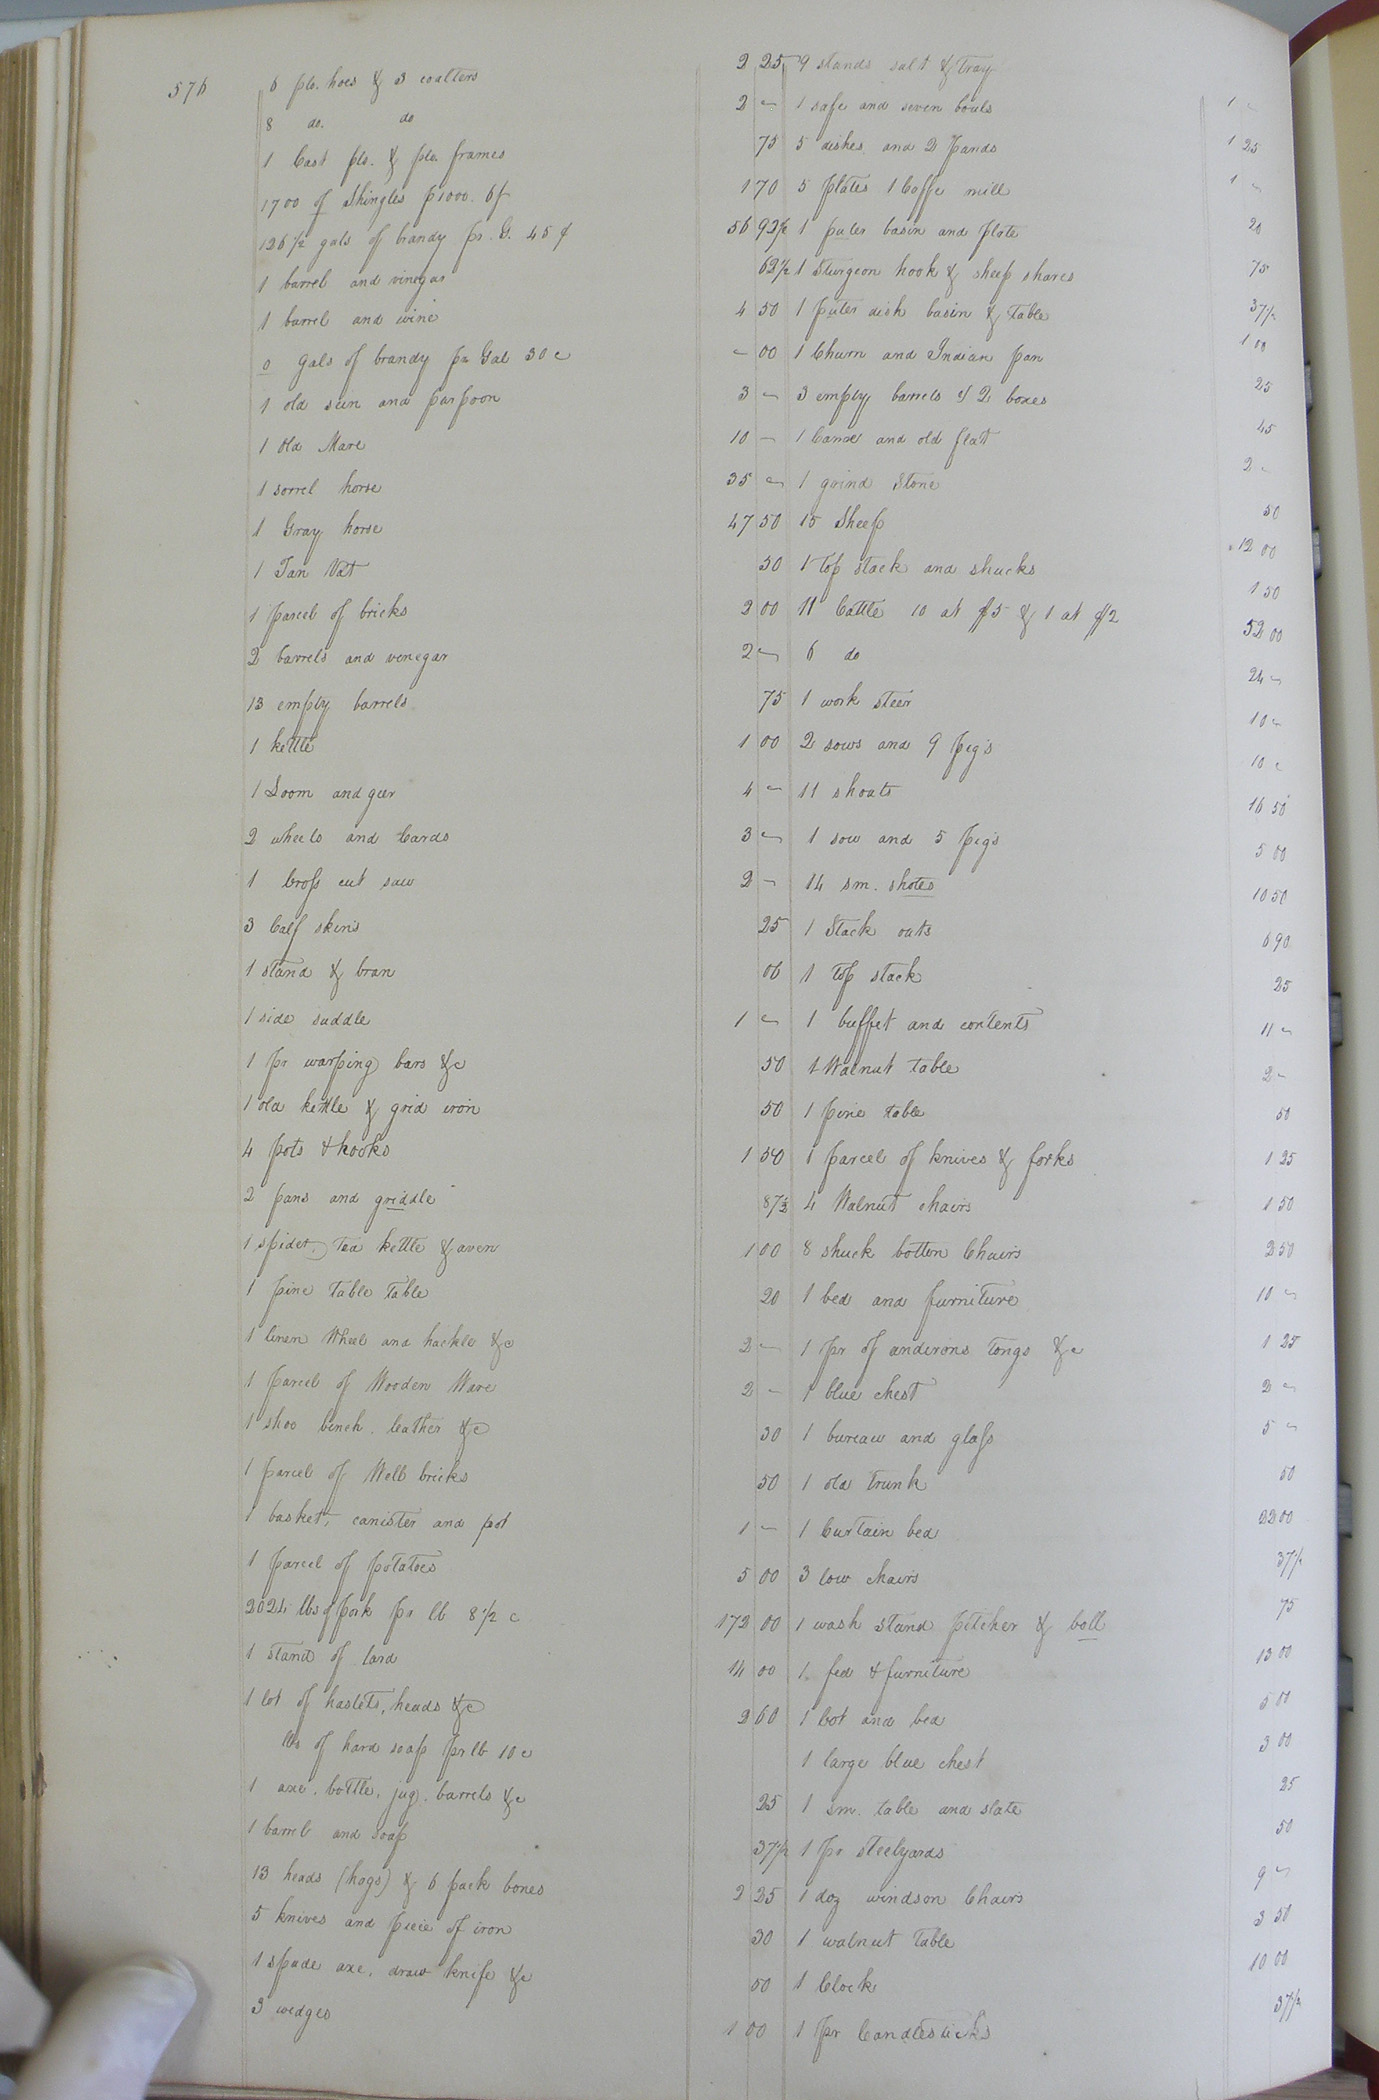 576
6 plo. hoes & 3 coalters 2 25
8 do. do 2 -
1 Cast plo. & plo. frames 75
1700 of Shingles p1000. 6f 1 70
126 1/2 gals of brandy pr. G. 45 ¢ 56 92 1/2
1 barrel and vinegar 62 1/2
1 barrel and wine 4 50
0 gals of brandy pr Gal 30 c - 00
1 old sein and parpoon 3 -
1 old Mare 10 -
1 sorrel horse 35 -
1 Gray horse 47 50
1 Tan Vat 50
1 parcel of bricks 2 00
2 barrels and venegar 2 -
13 empty barrels 75
1 kettle 1 00
1 Loom and geer 4 -
2 wheels and Cards 3 -
1 Cross cut saw 2 -
3 Calf skins 25
1 stand & bran 06
1 side saddle 1 -
1 pr warping bars &c 50
1 old kettle & grid iron 50
4 pots & hooks 1 50
2 pans and griddle 87 1/2
1 spider, tea kettle & aven 1 00
1 pine table table 20
1 linen Wheel and hackle &c 2 -
1 parcel of Wooden Ware 2 -
1 shoo bench. leather &c 30
1 parcel of Well bricks 50
1 basket, canister and pot 1 -
1 parcel of potatoes 5 00
2024 lbs of pork pr lb 8 1/2 c 172 00
1 stand of lard 14 00
1 lot of haslets, heads &c 2 60
lbs of hard soap pr lb 10 c
1 axe, bottle, jug, barrels &c 25
1 barrel and soap 37 1/2
13 heads (hogs) & 6 back bones 2 25
5 knives and piece of iron 30
1 spade axe, draw knife &c 50
3 wedges 1 00
9 stands salt & tray 1 -
1 safe and seven bouls 1 25
5 dishes and 2 pands 1 -
5 plates 1 Coffe mill 20
1 puter basin and plate 75
1 Sturgeon hook & sheep shares 37 1/2
1 puter dish basin & table 1 00
1 Churn and Indian pan 25
3 empty barrels & 2 boxes 45
1 Canoe and old flat 2 -
1 grind Stone 50
15 Sheep 12 00
1 top stack and shucks 1 50
11 Cattle 10 at $5 & 1 at $2 52 00
6 do 24 -
1 work steer 10 -
2 sows and 9 pigs 10 -
11 shoats 16 50
1 sow and 5 pigs 5 00
14 sm. shotes 10 50
1 Stack oats 6 90
1 top stack 25
1 buffet and contents 11 -
1 Walnut table 2 -
1 pine table 50
1 parcel of knives & forks 1 25
4 Walnut chairs 1 50
8 shuck bottom Chairs 2 50
1 bed and furniture 10 -
1 pr of andirons tongs &c 1 25
1 blue chest 2 -
1 bureau and glass 5 -
1 old trunk 50
1 Curtain bed 22 00
3 low chairs 37 1/2
1 wash stand pitcher & boll 75
1 fed & furniture 13 00
1 Cot and bed 5 00
1 large blue chest 3 00
1 sm. table and slate 25
1 pr steelyards 50
1 doz windson Chairs 9 -
1 walnut table 3 50
1 Clock 10 00
1 pr Candlesticks 37 1/2